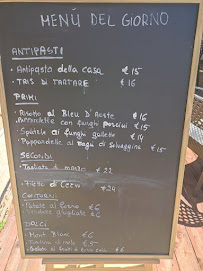 MENÚ DEL GIORNO
ANTIPASTI
• Antipasto della casa € 15
• TRIS DI TARTARE € 16
PRIMI
• Risotto al Bleu D'Aoste € 16
• Pappardelle con funghi porcini € 15
• Spätzle ai funghi galletti € 14
• Pappardelle al ragù di selvaggina € 15
SECONDI
• Tagliata di manzo € 22
• Filetto di € 24
CONTORNI
• Patate al forno € 6
• Verdure grigliate € 6
DOLCI
• Mont Blanc € 6
• di mele € 5
€ 6